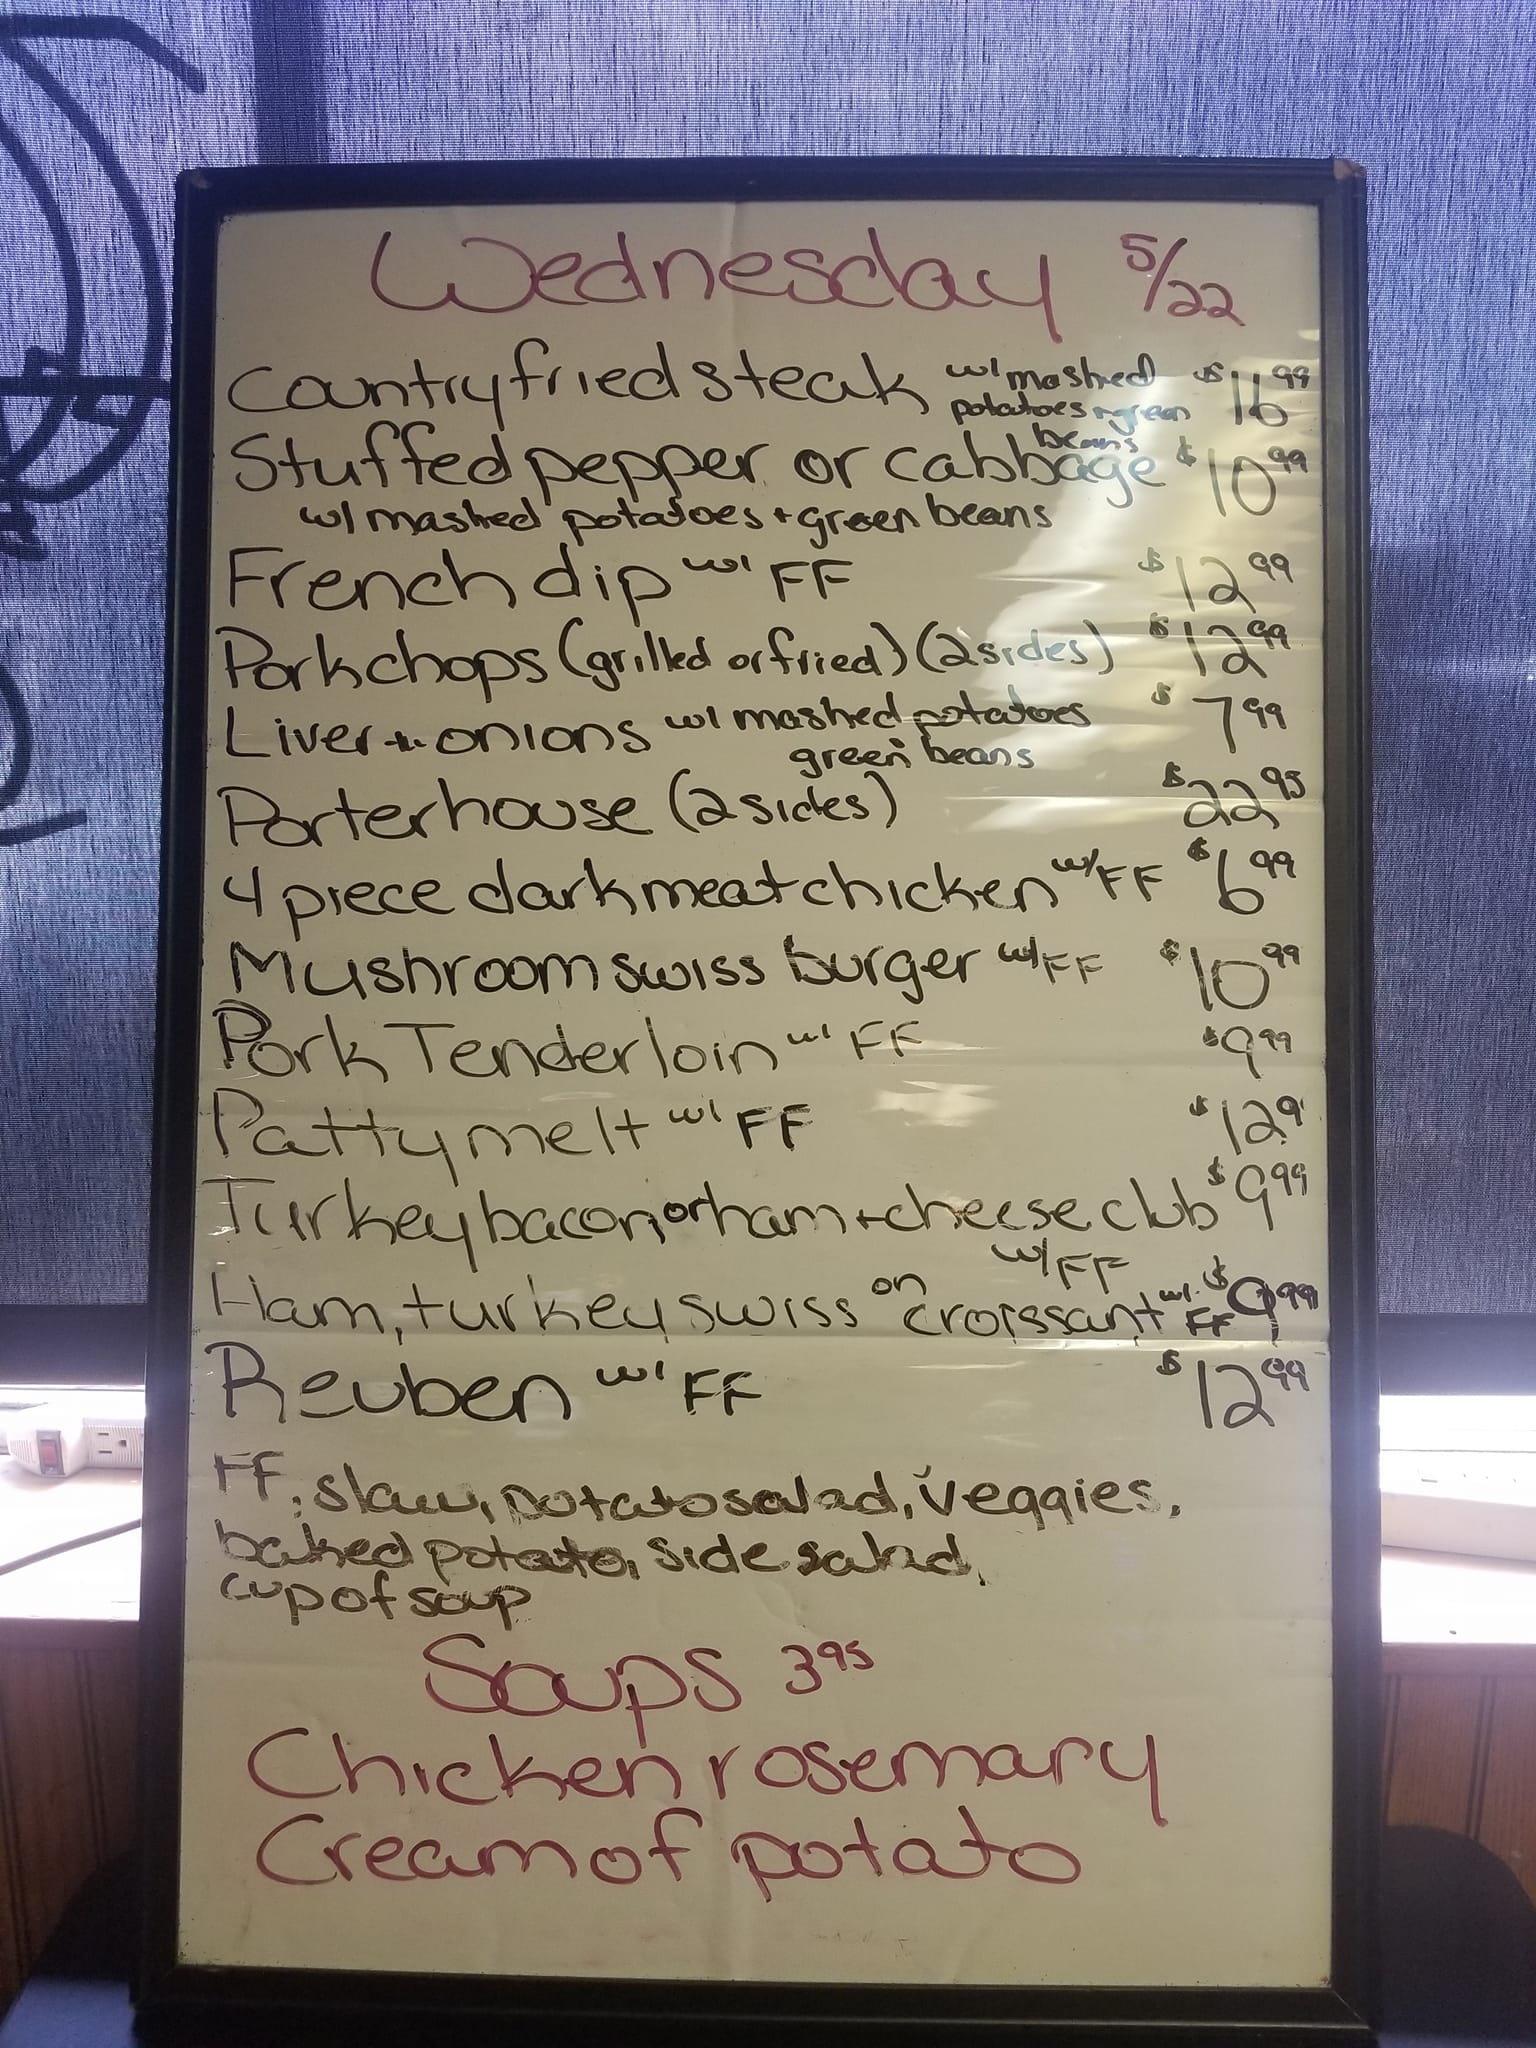 Wednesday 5/22
Country fried steak w/ mashed potatoes + green beans $16.99
Stuffed pepper or cabbage $10.99
w/ mashed potatoes + green beans
French dip w/ FF $12.99
Porkchops (grilled or fried) (2 sides) $12.99
Liver + onions w/ mashed potatoes $7.99
green beans
Porterhouse (2 sides) $22.95
4 piece dark meat chicken w/ FF $6.99
Mushroom swiss burger w/ FF $10.99
Pork Tenderloin w/ FF $9.99
Patty melt w/ FF $12.9
Turkey bacon or ham + cheese club $9.99
w/ FF
Ham, turkey swiss on croissant w/ FF $9.99
Reuben w/ FF $12.99
FF, slaw, potato salad, veggies,
baked potato, side salad,
cup of soup
Soups 3.95
Chicken rosemary
Cream of potato